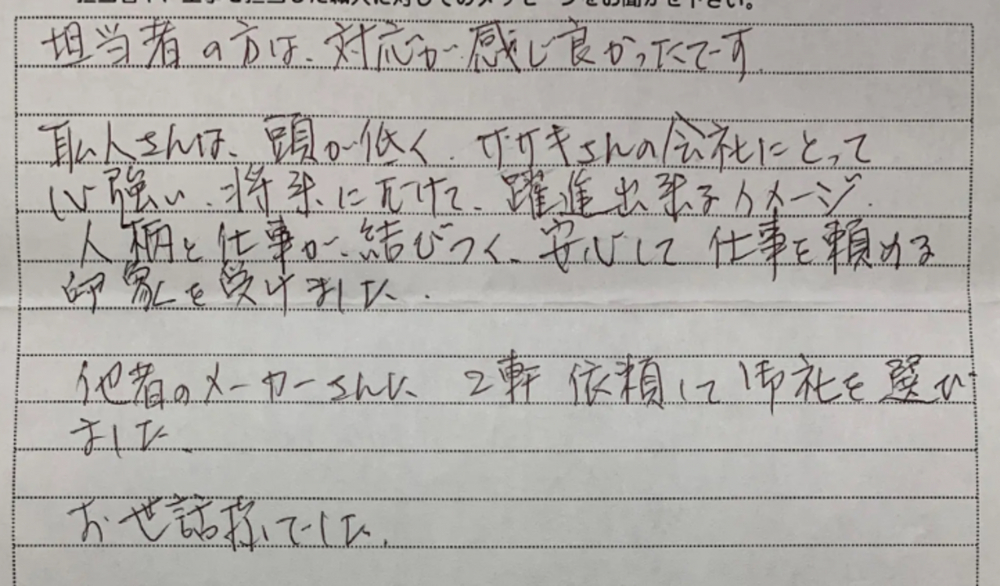 担当者の方は、対応が感じ良かったです。
職人さんは、頭が低く、ササキさんの会社にとって
心強い、将来に向けて、躍進出来るイメージ。
人柄と仕事が、結びつく、安心して仕事を頼める
印象を受けました。
他者のメーカーさんに、2軒依頼して御社を選び
ました。
お世話様でした。